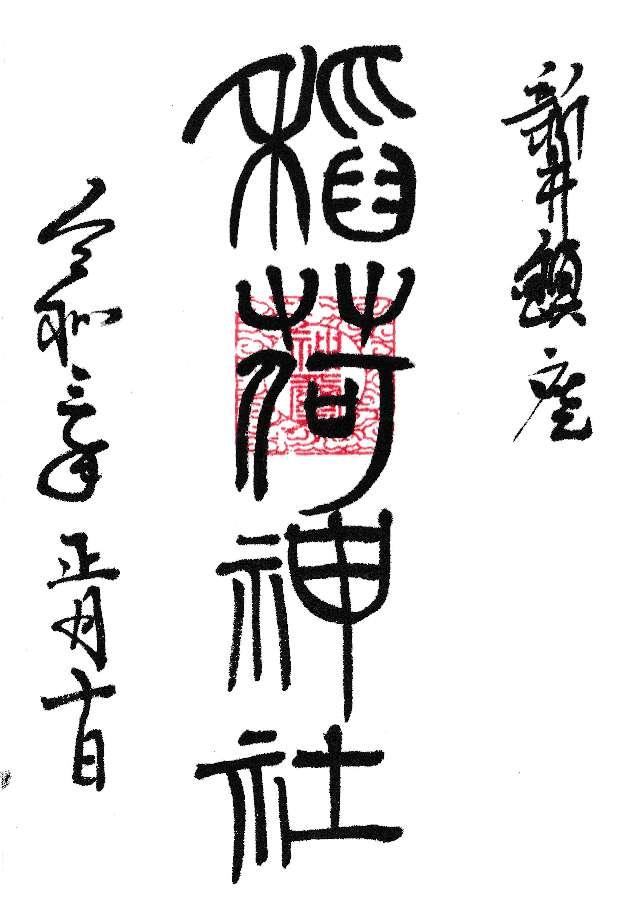 新井鎮座
稲荷神社
令和三年正月十日